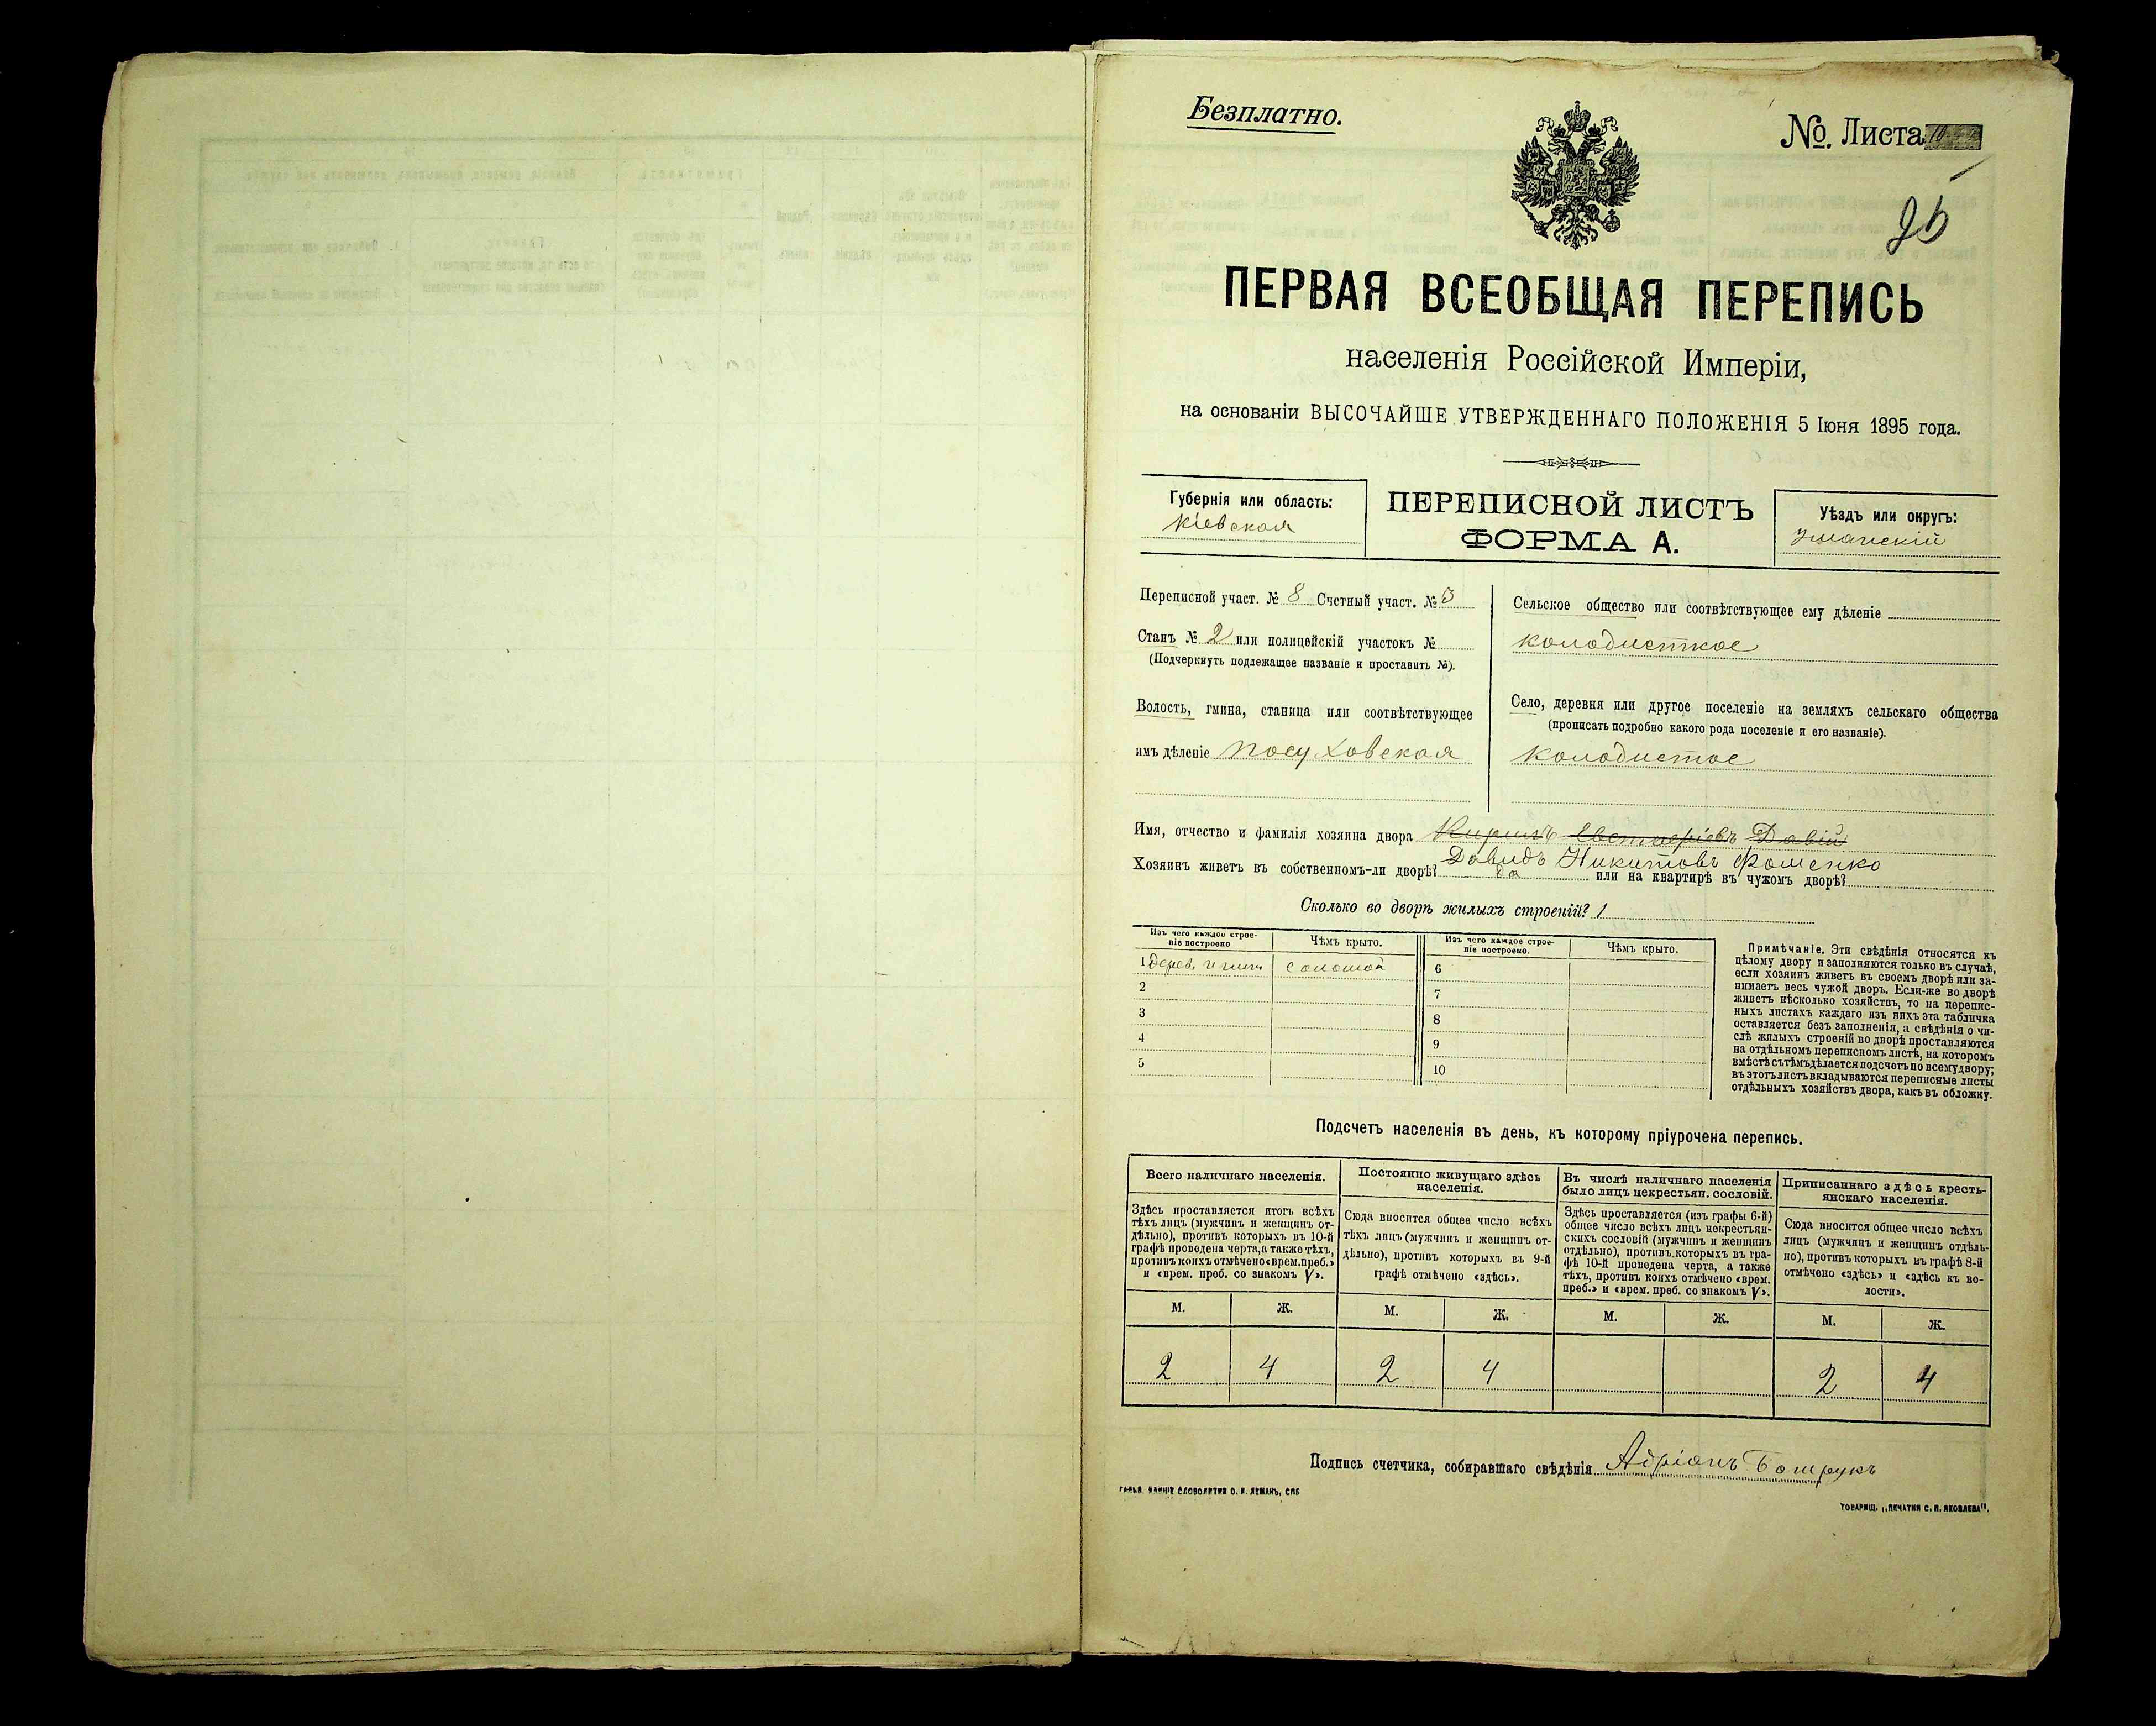 Безплатно.
№. Листа
95
ПЕРВАЯ ВСЕОБЩАЯ ПЕРЕПИСЬ
населенія Россійской Имперіи,
на основаніи ВЫСОЧАЙШЕ УТВЕРЖДЕННАГО ПОЛОЖЕНІЯ 5 Іюня 1895 года.
Губернія или область:
Кіевская
ПЕРЕПИСНОЙ ЛИСТЪ
ФОРМА А.
Уѣздъ или округъ:
Уманскій
Переписной участ. № 8 Счетный участ. № 3
Станъ № 2 или полицейскій участокъ №
(Подчеркнуть подлежащее названіе и проставить №).
Волость, гмина, станица или соотвѣтствующее
имъ дѣленіе Посуховская
Сельское общество или соотвѣтствующее ему дѣленіе
колодисткое
Село, деревня или другое поселеніе на земляхъ сельскаго общества
(прописать подробно какого рода поселеніе и его названіе).
Колодистое
Имя, отчество и фамилія хозяина двора Кирилъ Евстафіевъ Давій
Давидъ Никитовъ Фоменко
Хозяинъ живетъ въ собственномъ-ли дворѣ? да или на квартирѣ въ чужомъ дворѣ?
Сколько во дворѣ жилыхъ строеній? 1
Изъ чего каждое строе-
ніе построено
Чѣмъ крыто.
Изъ чего каждое строе-
ніе построено.
Чѣмъ крыто.
1 дерев. и глин соломой 6
2 7
3 8
4 9
5 10
Примѣчаніе. Эти свѣдѣнія относятся къ
цѣлому двору и заполняются только въ случаѣ,
если хозяинъ живетъ въ своемъ дворѣ или за-
нимаетъ весь чужой дворъ. Если-же во дворѣ
живетъ нѣсколько хозяйствъ, то на перепис-
ныхъ листахъ каждаго изъ нихъ эта табличка
оставляется безъ заполненія, а свѣдѣнія о чи-
слѣ жилыхъ строеній во дворѣ проставляются
на отдѣльномъ переписномъ листѣ, на которомъ
вмѣстѣ съ тѣмъ дѣлается подсчетъ по всему двору;
въ этотъ листъ вкладываются переписные листы
отдѣльныхъ хозяйствъ двора, какъ въ обложку.
Подсчетъ населенія въ день, къ которому пріурочена перепись.
Всего наличнаго населенія.
Здѣсь проставляется итогъ всѣхъ
тѣхъ лицъ (мужчинъ и женщинъ от-
дѣльно), противъ которыхъ въ 10-й
графѣ проведена черта, а также тѣхъ,
противъ коихъ отмѣчено «врем. преб.»
и «врем. преб. со знакомъ V».
Постоянно живущаго здѣсь
населенія.
Сюда вносится общее число всѣхъ
тѣхъ лицъ (мужчинъ и женщинъ от-
дѣльно), противъ которыхъ въ 9-й
графѣ отмѣчено «здѣсь».
Въ числѣ наличнаго населенія
было лицъ некрестьян. сословій.
Здѣсь проставляется (изъ графы 6-й)
общее число всѣхъ лицъ некрестьян-
скихъ сословій (мужчинъ и женщинъ
отдѣльно), противъ которыхъ въ гра-
фѣ 10-й проведена черта, а также
тѣхъ, противъ коихъ отмѣчено «врем.
преб.» и «врем. преб. со знакомъ V».
Приписаннаго здѣсь кресть-
янскаго населенія.
Сюда вносится общее число всѣхъ
лицъ (мужчинъ и женщинъ отдѣль-
но), противъ которыхъ въ графѣ 8-й
отмѣчено «здѣсь» и «здѣсь къ во-
лости».
М. Ж. М. Ж. М. Ж. М. Ж.
2 4 2 4 2 4
Подпись счетчика, собиравшаго свѣдѣнія Адріанъ Бошрукъ
СЛОВОЛИТНЯ О. И. ЛЕМАНЪ, СПБ
ТОВАРИЩ. „ПЕЧАТНЯ С. П. ЯКОВЛЕВА".